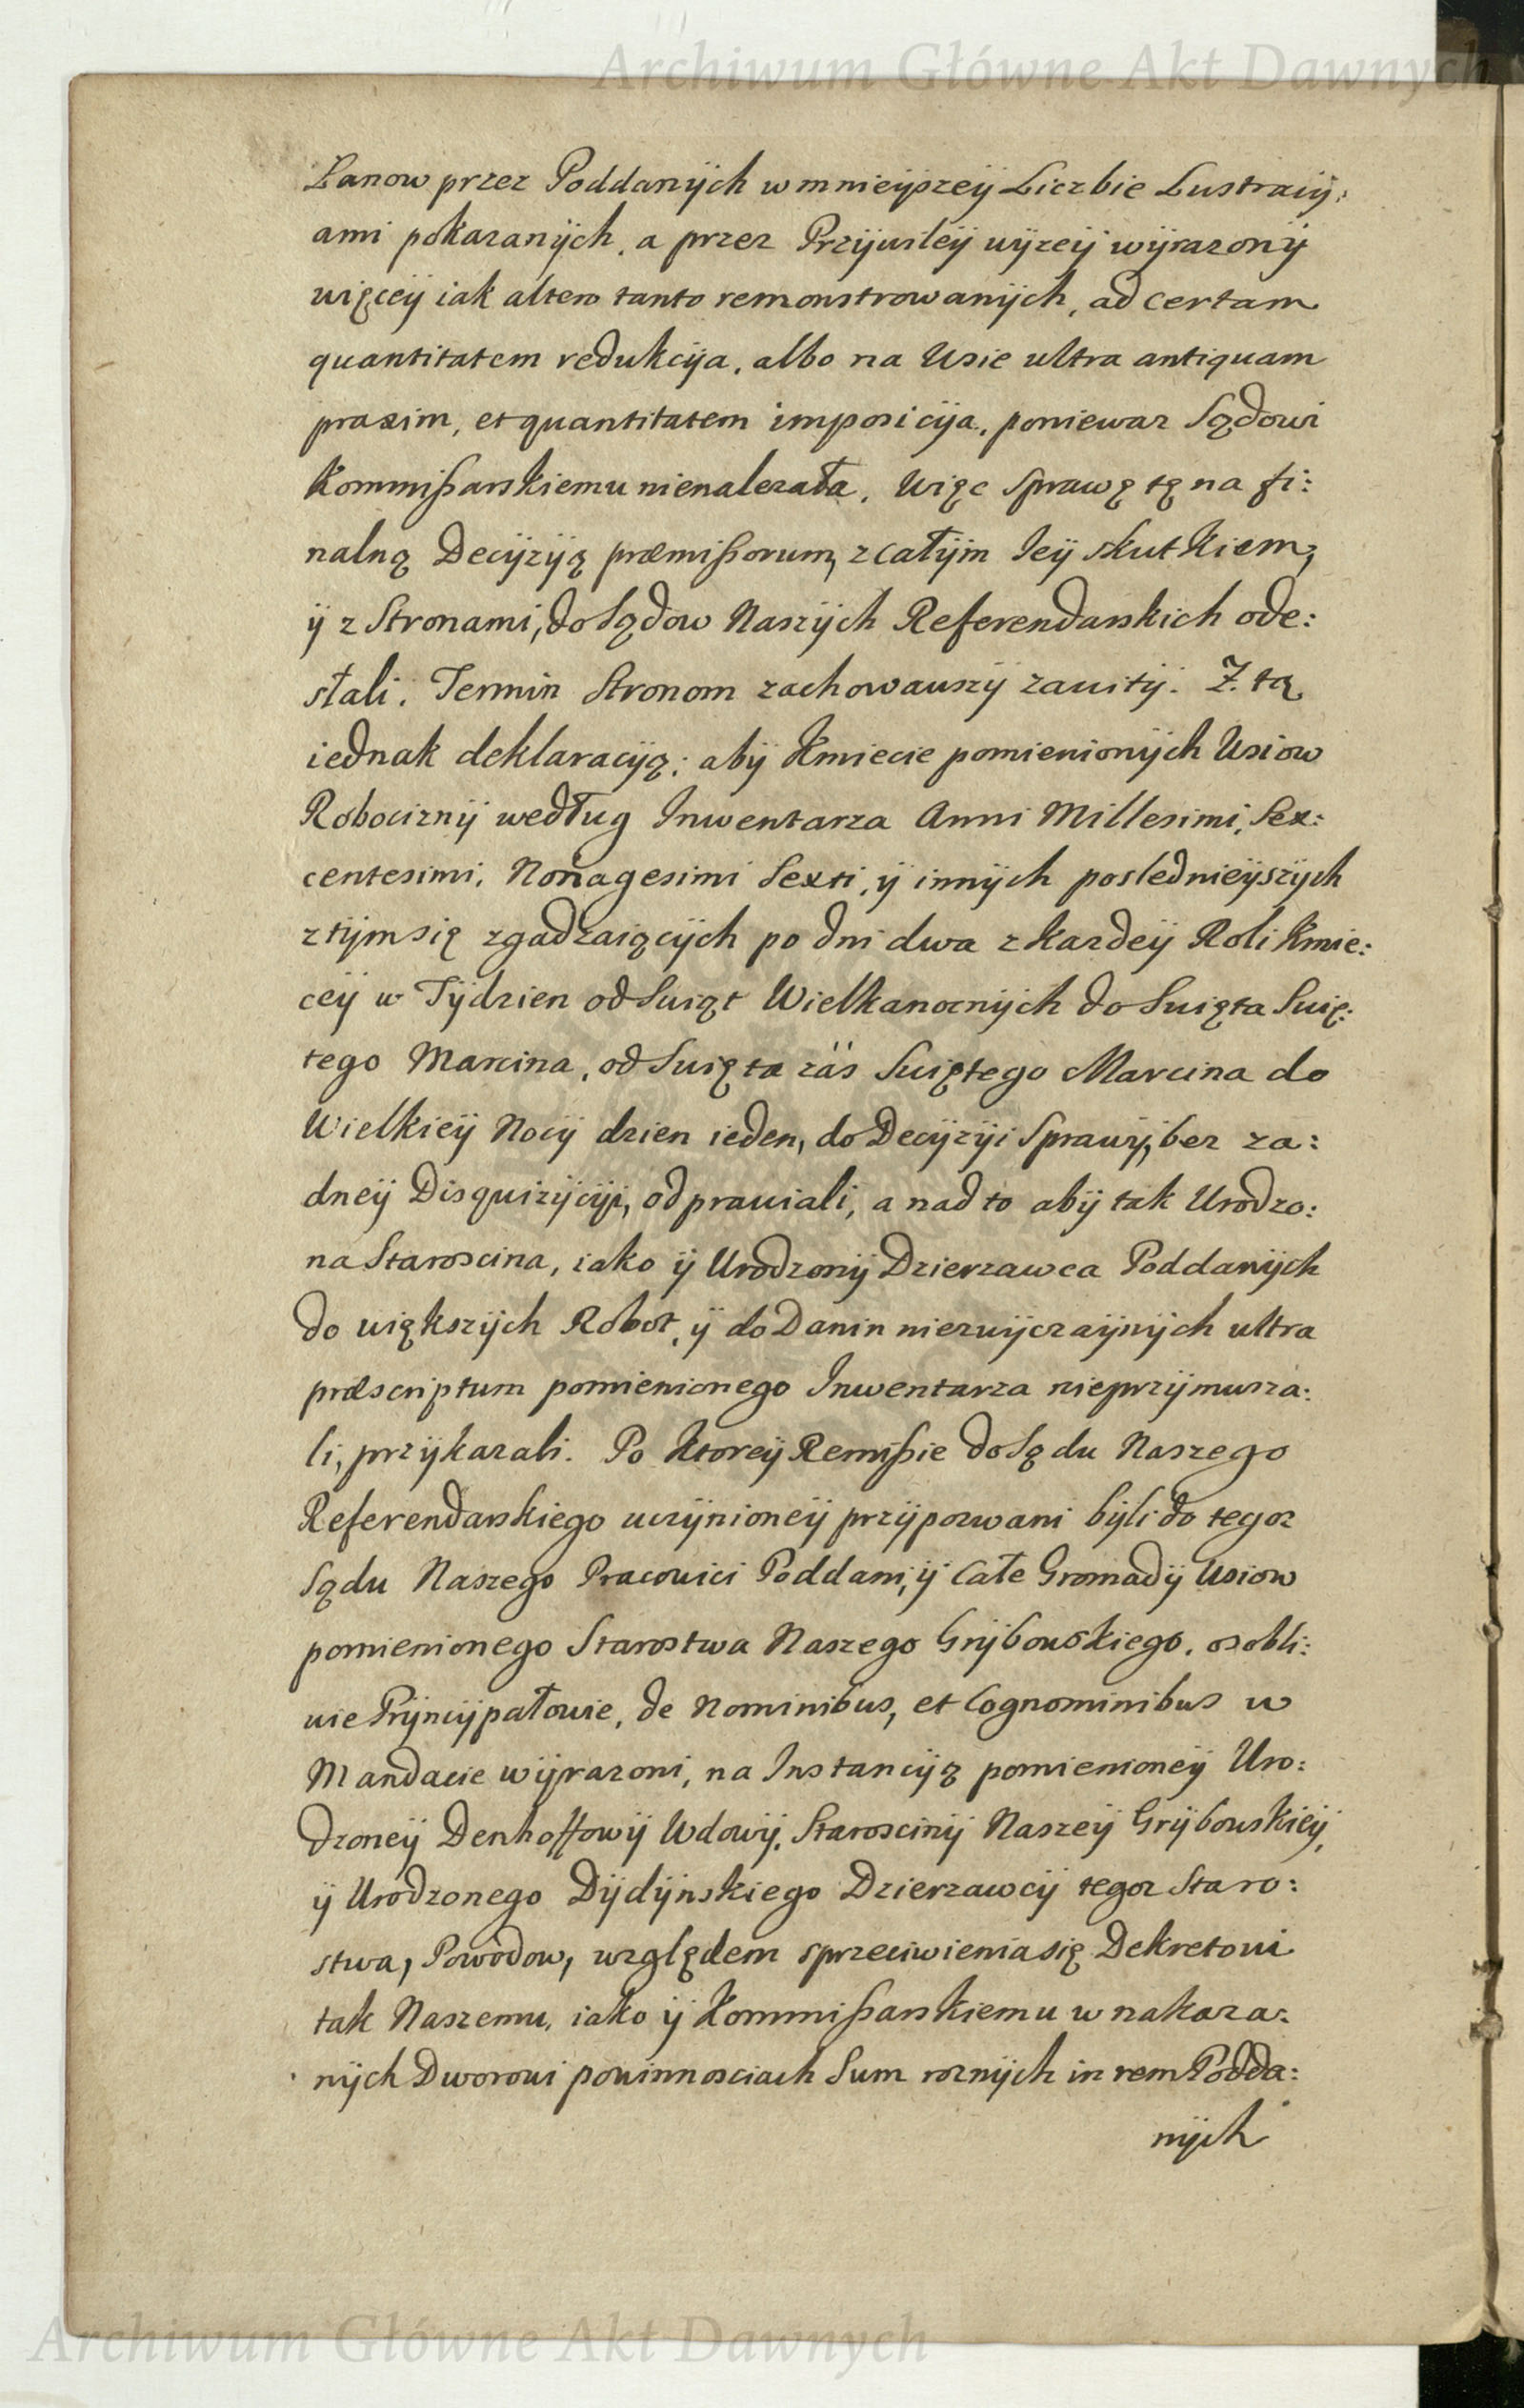 Archiwum Główne Akt Dawnych
Łanow przez Poddanÿch w mnieÿszeÿ Liczbie Lustracÿ:
ami pokazanÿch, a przez Przÿwileÿ wÿzeÿ wÿrazonÿ
więceÿ iak altero tanto remonstrowanÿch, ad certam
quantitatem redukcÿa, albo na Wsie ultra antiquam
praxim, et quantitatem imposicÿa, poniewaz Sądowi
Kommißarskiemu nienalezała, Więc Sprawę tę na fi:
nalną Decÿzÿą præmißorum, z całÿm Ieÿ skutkiem,
ÿ z Stronami, do Sądow Naszÿch Referendarskich ode:
słali, Termin Stronom zachowawszÿ zawitÿ. Z tą
iednak deklaracÿą: abÿ Kmiecie pomienionÿch Wsiow
Robociznÿ według Inwentarza Anni Millesimi, Sex:
centesimi, Nonagesimi Sexti, ÿ innÿch poslednieÿszÿch
z tÿm się zgadzaiącÿch po dni dwa z kazdeÿ Roli Kmie:
ceÿ w Tÿdzien od Swiąt Wielkanocnÿch do Swięta Swię:
tego Marcina, od Swięta zás Swiętego Marcina do
Wielkieÿ Nocÿ dzien ieden, do Decÿzÿi Sprawÿ, bez za:
dneÿ Disquizÿcÿi, odprawiali, a nad to abÿ tak Urodzo:
na Staroscina, iako ÿ Urodzonÿ Dzierzawca Poddanÿch
do większÿch Robot, ÿ do Danin niezwÿczaÿnÿch ultra
præscriptum pomienionego Inwentarza nieprzÿmusza:
li, przÿkazali. Po ktoreÿ Remißie do Sądu Naszego
Referendarskiego uczÿnioneÿ przÿpozwani bÿli do tegoz
Sądu Naszego Pracowici Poddani, ÿ Całe Gromadÿ Wsiow
pomienionego Starostwa Naszego Grÿbowskiego, osobli:
wie Prÿncÿpałowie, de Nominibus, et Cognominibus w
Mandacie wÿrazoni, na Instancÿą pomienioneÿ Uro:
dzoneÿ Denhoffowÿ Wdowÿ, Staroscinÿ Naszeÿ Grÿbowskieÿ,
ÿ Urodzonego Dÿdÿnskiego Dzierzawcÿ tegoz Staro:
stwa, Powodow, względem sprzeciwienia się Dekretowi
tak Naszemu, iako ÿ Kommißarskiemu w nakaza:
nÿch Dworowi powinnosciach Sum roznÿch in rem Podda:
nÿch
Archiwum Główne Akt Dawnych